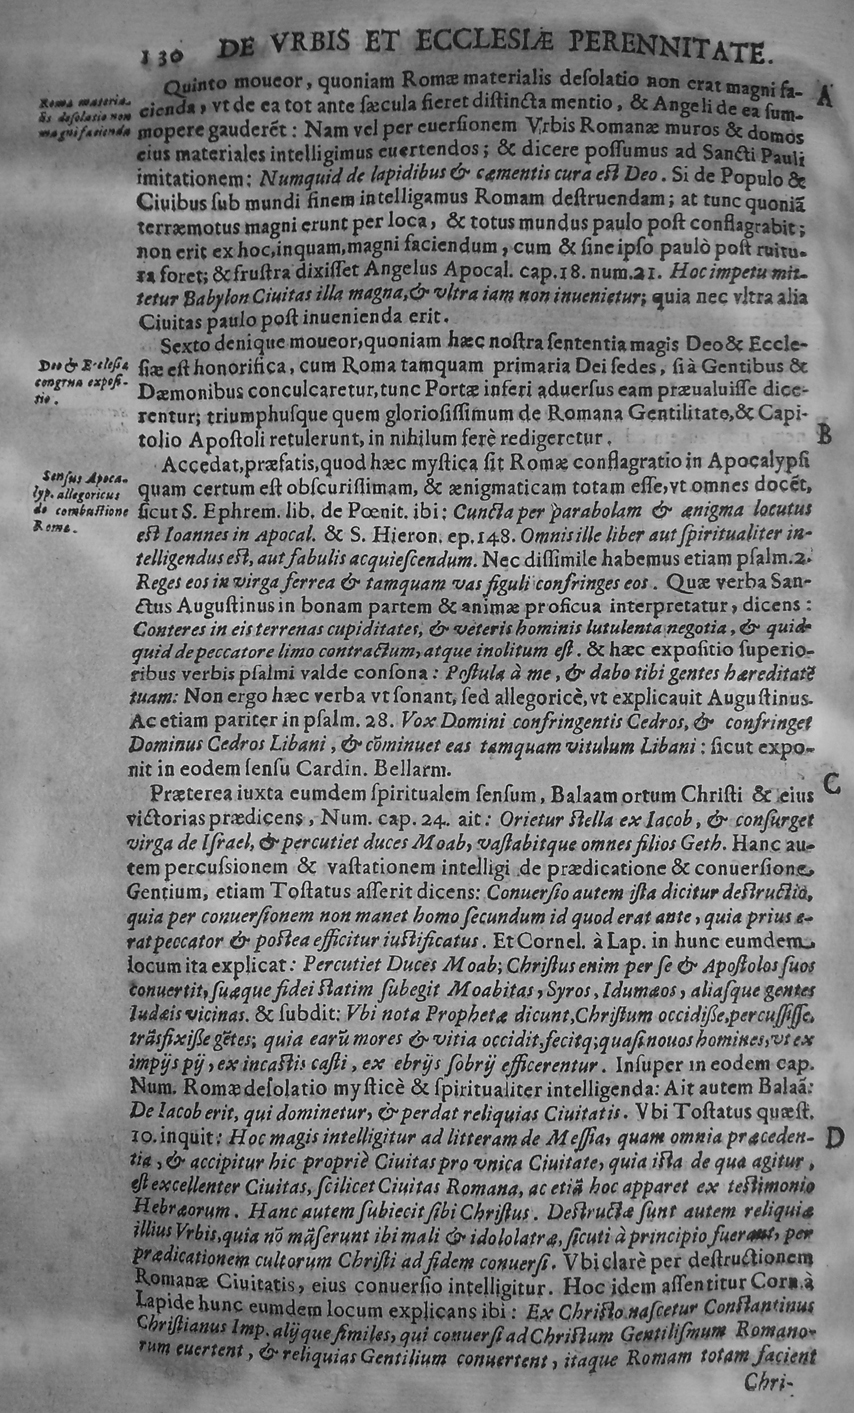 130 DE VRBIS ET ECCLESIÆ PERENNITATE.
Quinto moueor, quoniam Romæ materialis deſolatio non erat magni fa-
Roma materia-
lis deſolatio non
magni facienda
A
cienda, vt de ea tot ante ſæcula fieret diſtincta mentio, & Angeli de ea ſum-
mopere gauderẽt: Nam vel per euerſionem Vrbis Romanæ muros & domos
eius materiales intelligimus euertendos; & dicere poſſumus ad Sancti Pauli
imitationem: Numquid de lapidibus & cæmentis cura eſt Deo. Si de Populo &
Ciuibus ſub mundi finem intelligamus Romam deſtruendam; at tunc quoniã
terræmotus magni erunt per loca, & totus mundus paulo poſt conflagrabit;
non erit ex hoc, inquam, magni faciendum, cum & ſine ipſo paulò poſt ruitu-
ra foret; & fruſtra dixiſſet Angelus Apocal. cap.18. num.21. Hoc impetu mit-
tetur Babylon Ciuitas illa magna, & vltra iam non inuenietur; quia nec vltra alia
Ciuitas paulo poſt inuenienda erit.
Sexto denique moueor, quoniam hæc noſtra ſententia magis Deo & Eccle-
Deo & Eccleſiæ
congrua expoſi-
tio.
ſiæ eſt honorifica, cum Roma tamquam primaria Dei ſedes, ſi à Gentibus &
Dæmonibus conculcaretur, tunc Portæ inferi aduerſus eam præualuiſſe dice-
rentur; triumphuſque quem glorioſiſſimum de Romana Gentilitate, & Capi-
tolio Apoſtoli retulerunt, in nihilum ferè redigeretur.
B
Accedat, præfatis, quod hæc myſtica ſit Romæ conflagratio in Apocalypſi
Senſus Apoca-
lyp. allegoricus
de combuſtione
Romæ.
quam certum eſt obſcuriſſimam, & ænigmaticam totam eſſe, vt omnes docẽt,
ſicut S. Ephrem. lib. de Pœnit. ibi: Cuncta per parabolam & ænigma locutus
eſt Ioannes in Apocal. & S. Hieron. ep.148. Omnis ille liber aut ſpiritualiter in-
telligendus eſt, aut fabulis acquieſcendum. Nec diſſimile habemus etiam pſalm.2.
Reges eos in virga ferrea & tamquam vas figuli confringes eos. Quæ verba San-
ctus Auguſtinus in bonam partem & animæ proficua interpretatur, dicens:
Conteres in eis terrenas cupiditates, & veteris hominis lutulenta negotia, & quid-
quid de peccatore limo contractum, atque inolitum eſt. & hæc expoſitio ſuperio-
ribus verbis pſalmi valde conſona: Poſtula à me, & dabo tibi gentes hæreditatẽ
tuam: Non ergo hæc verba vt ſonant, ſed allegoricè, vt explicauit Auguſtinus.
Ac etiam pariter in pſalm. 28. Vox Domini confringentis Cedros, & confringet
Dominus Cedros Libani, & cõminuet eas tamquam vitulum Libani: ſicut expo-
nit in eodem ſenſu Cardin. Bellarm.
C
Præterea iuxta eumdem ſpiritualem ſenſum, Balaam ortum Chriſti & eius
victorias prædicens, Num. cap. 24. ait: Orietur ſtella ex Iacob, & conſurget
virga de Iſrael, & percutiet duces Moab, vaſtabitque omnes filios Geth. Hanc au-
tem percuſsionem & vaſtationem intelligi de prædicatione & conuerſione
Gentium, etiam Toſtatus aſſerit dicens: Conuerſio autem iſta dicitur deſtructio,
quia per conuerſionem non manet homo ſecundum id quod erat ante, quia prius e-
rat peccator & poſtea efficitur iuſtificatus. Et Cornel. à Lap. in hunc eumdem
locum ita explicat: Percutiet Duces Moab; Chriſtus enim per ſe & Apoſtolos ſuos
conuertit, ſuæque fidei ſtatim ſubegit Moabitas, Syros, Idumæos, aliaſque gentes
Iudæis vicinas. & ſubdit: Vbi nota Prophetæ dicunt, Chriſtum occidiſſe, percuſſiſſe,
trãsfixiſſe gẽtes; quia earũ mores & vitia occidit, fecitq; quaſi nouos homines, vt ex
impijs pij, ex incaſtis caſti, ex ebrijs ſobrij efficerentur. Inſuper in eodem cap.
Num. Romæ deſolatio myſticè & ſpiritualiter intelligenda: Ait autem Balaã:
De Iacob erit, qui dominetur, & perdat reliquias Ciuitatis. Vbi Toſtatus quæſt.
D
10. inquit: Hoc magis intelligitur ad litteram de Meſſia, quam omnia præceden-
tia, & accipitur hic propriè Ciuitas pro vnica Ciuitate, quia iſta de qua agitur,
eſt excellenter Ciuitas, ſcilicet Ciuitas Romana, ac etiã hoc apparet ex teſtimonio
Hebræorum. Hanc autem ſubiecit ſibi Chriſtus. Deſtructæ ſunt autem reliquiæ
illius Vrbis, quia nõ mãſerunt ibi mali & idololatræ, ſicuti à principio fuerant, per
prædicationem cultorum Chriſti ad fidem conuerſi. Vbi clarè per deſtructionem
Romanæ Ciuitatis, eius conuerſio intelligitur. Hoc idem aſſentitur Corn. à
Lapide hunc eumdem locum explicans ibi: Ex Chriſto naſcetur Conſtantinus
Chriſtianus Imp. alijque ſimiles, qui conuerſi ad Chriſtum Gentiliſmum Romano-
rum euertent, & reliquias Gentilium conuertent, itaque Romam totam facient
Chri-